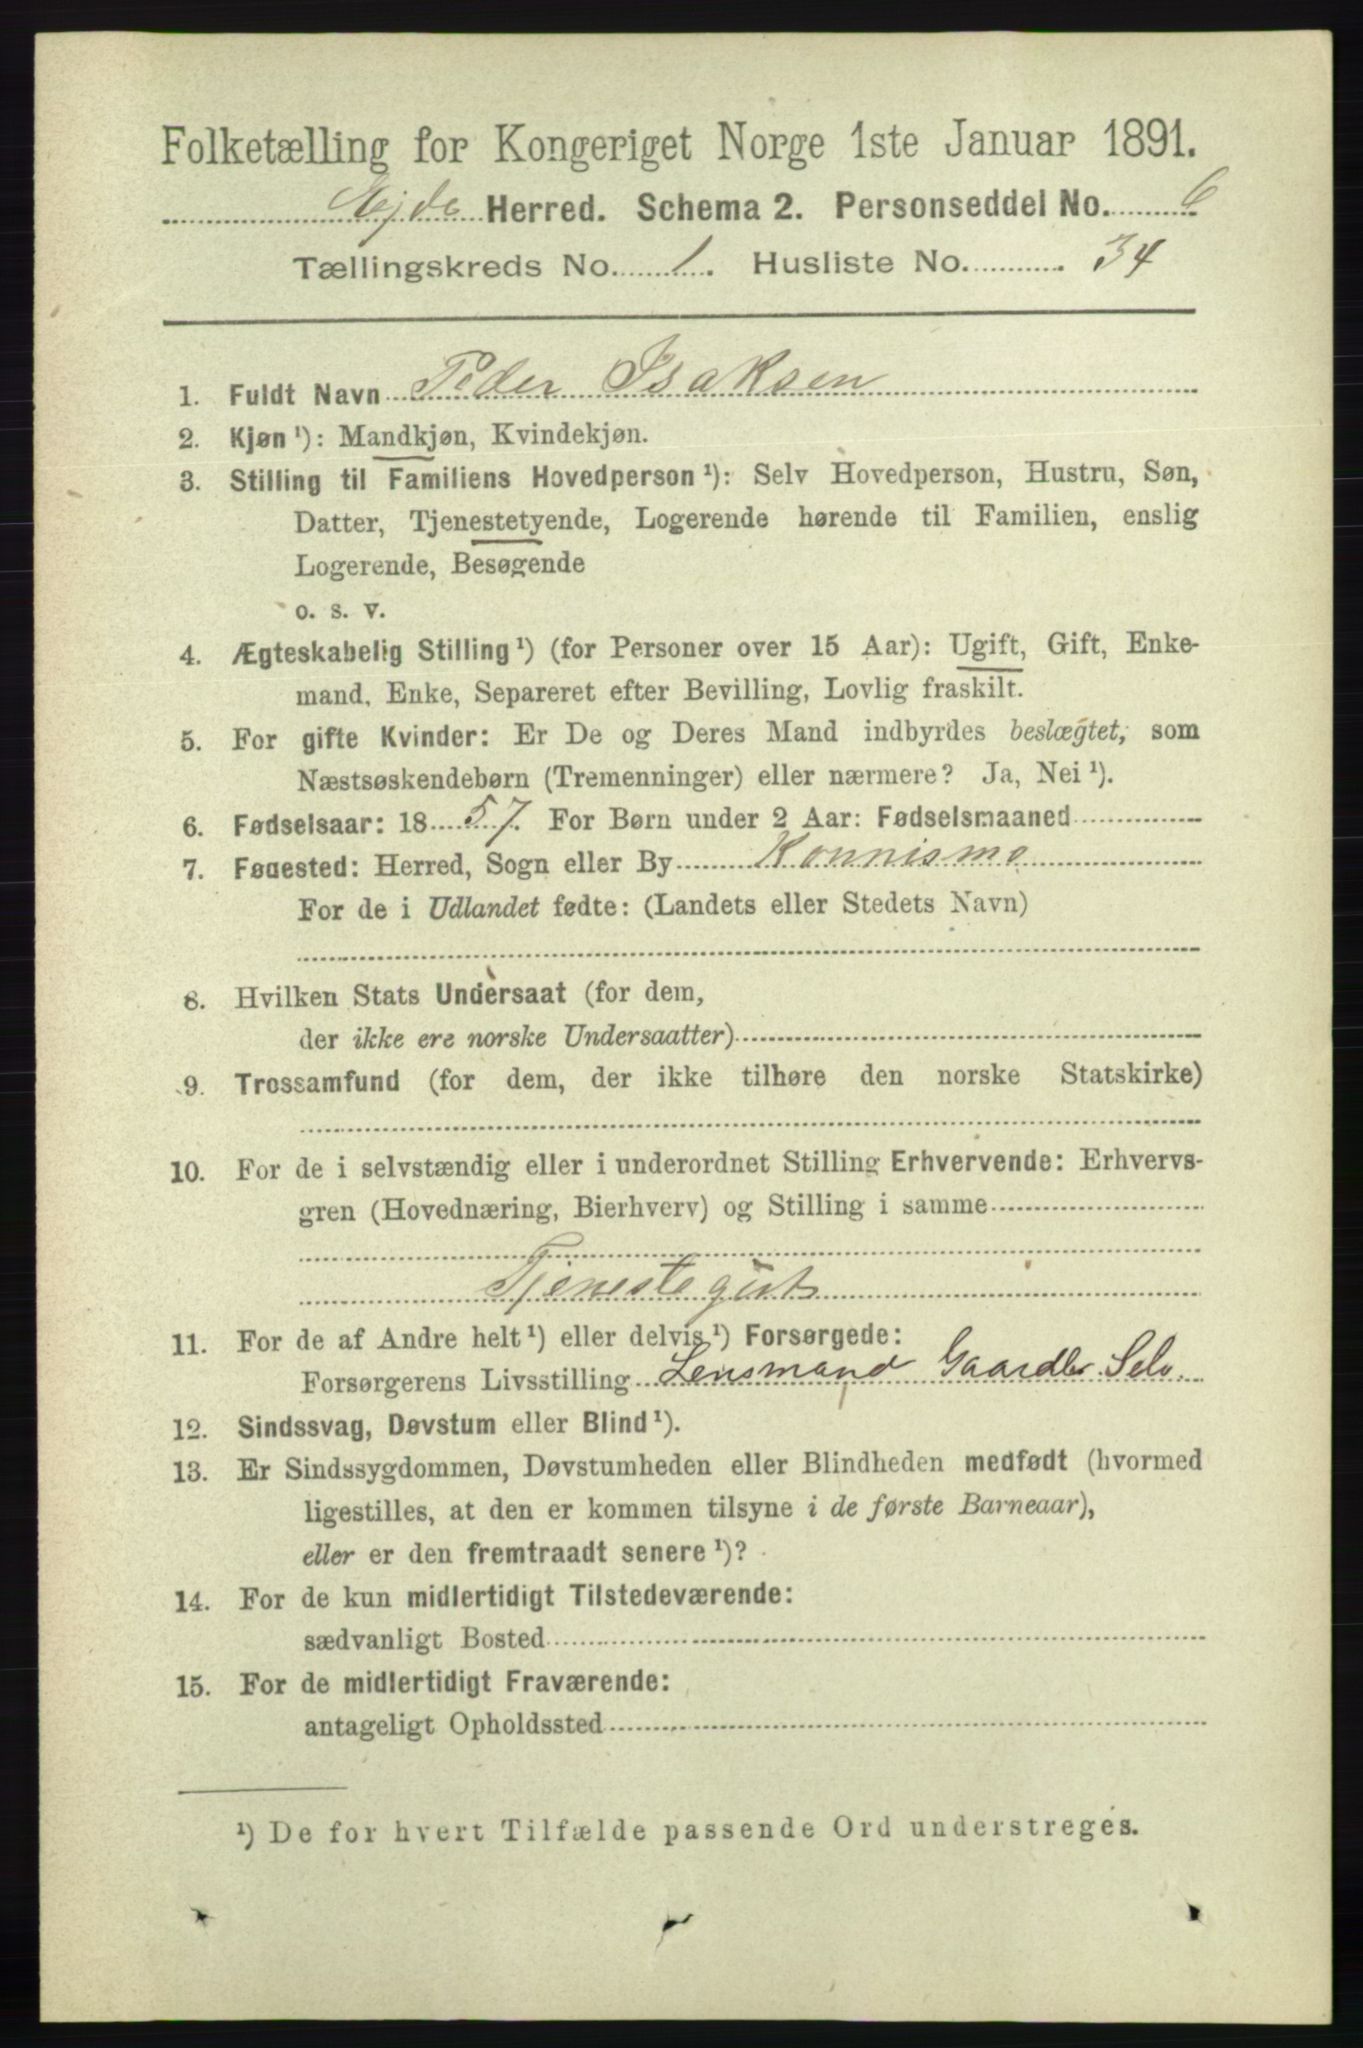 Folketælling for Kongeriget Norge 1ste Januar 1891.
Herred. Schema 2. Personseddel No. 6
Tællingskreds No. 1. Husliste No. 34
1. Fuldt Navn Peder Isaksen
2. Kjøn ¹): Mandkjøn, Kvindekjøn.
3. Stilling til Familiens Hovedperson ¹): Selv Hovedperson, Hustru, Søn,
Datter, Tjenestetyende, Logerende hørende til Familien, enslig
Logerende, Besøgende
o. s. v.
4. Ægteskabelig Stilling ¹) (for Personer over 15 Aar): Ugift, Gift, Enke-
mand, Enke, Separeret efter Bevilling, Lovlig fraskilt.
5. For gifte Kvinder: Er De og Deres Mand indbyrdes beslægtet, som
Næstsøskendebørn (Tremenninger) eller nærmere? Ja, Nei ¹).
6. Fødselsaar: 18 57. For Børn under 2 Aar: Fødselsmaaned
7. Fødested: Herred, Sogn eller By Konnismo
For de i Udlandet fødte: (Landets eller Stedets Navn)
8. Hvilken Stats Undersaat (for dem,
der ikke ere norske Undersaatter)
9. Trossamfund (for dem, der ikke tilhøre den norske Statskirke)
10. For de i selvstændig eller i underordnet Stilling Erhvervende: Erhvervs-
gren (Hovednæring, Bierhverv) og Stilling i samme
Tjenestegut
11. For de af Andre helt ¹) eller delvis ¹) Forsørgede:
Forsørgerens Livsstilling Lensmand Gaardbr. Selv.
12. Sindssvag, Døvstum eller Blind ¹).
13. Er Sindssygdommen, Døvstumheden eller Blindheden medfødt (hvormed
ligestilles, at den er kommen tilsyne i de første Barneaar),
eller er den fremtraadt senere ¹)?
14. For de kun midlertidigt Tilstedeværende:
sædvanligt Bosted
15. For de midlertidigt Fraværende:
antageligt Opholdssted
¹) De for hvert Tilfælde passende Ord understreges.